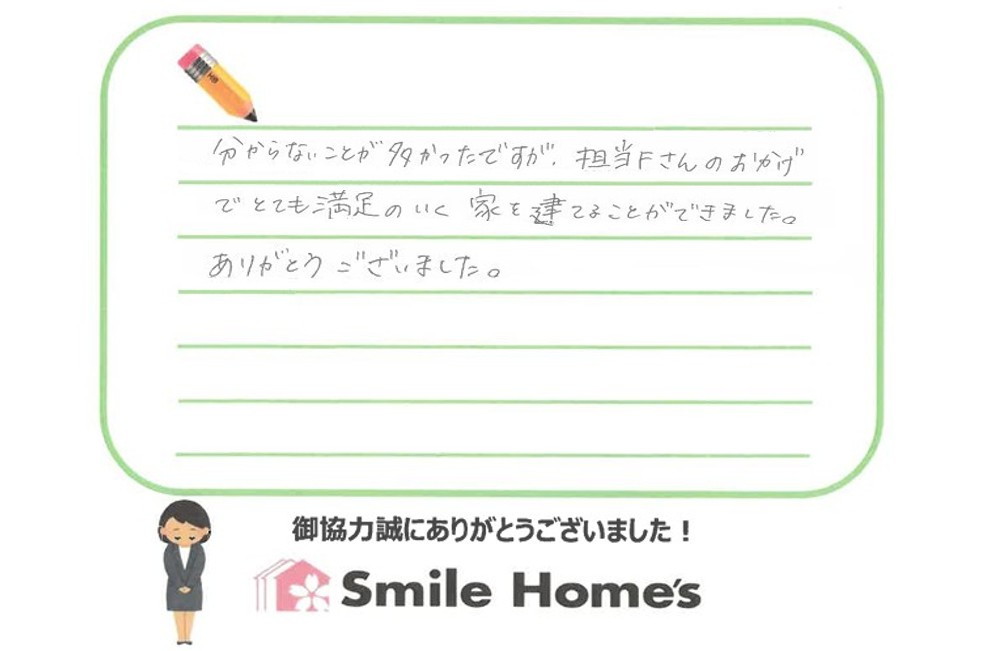 HB
分からないことが多かったですが、担当Fさんのおかげ
でとても満足のいく家を建てることができました。
ありがとうございました。
御協力誠にありがとうございました！
Smile Home's